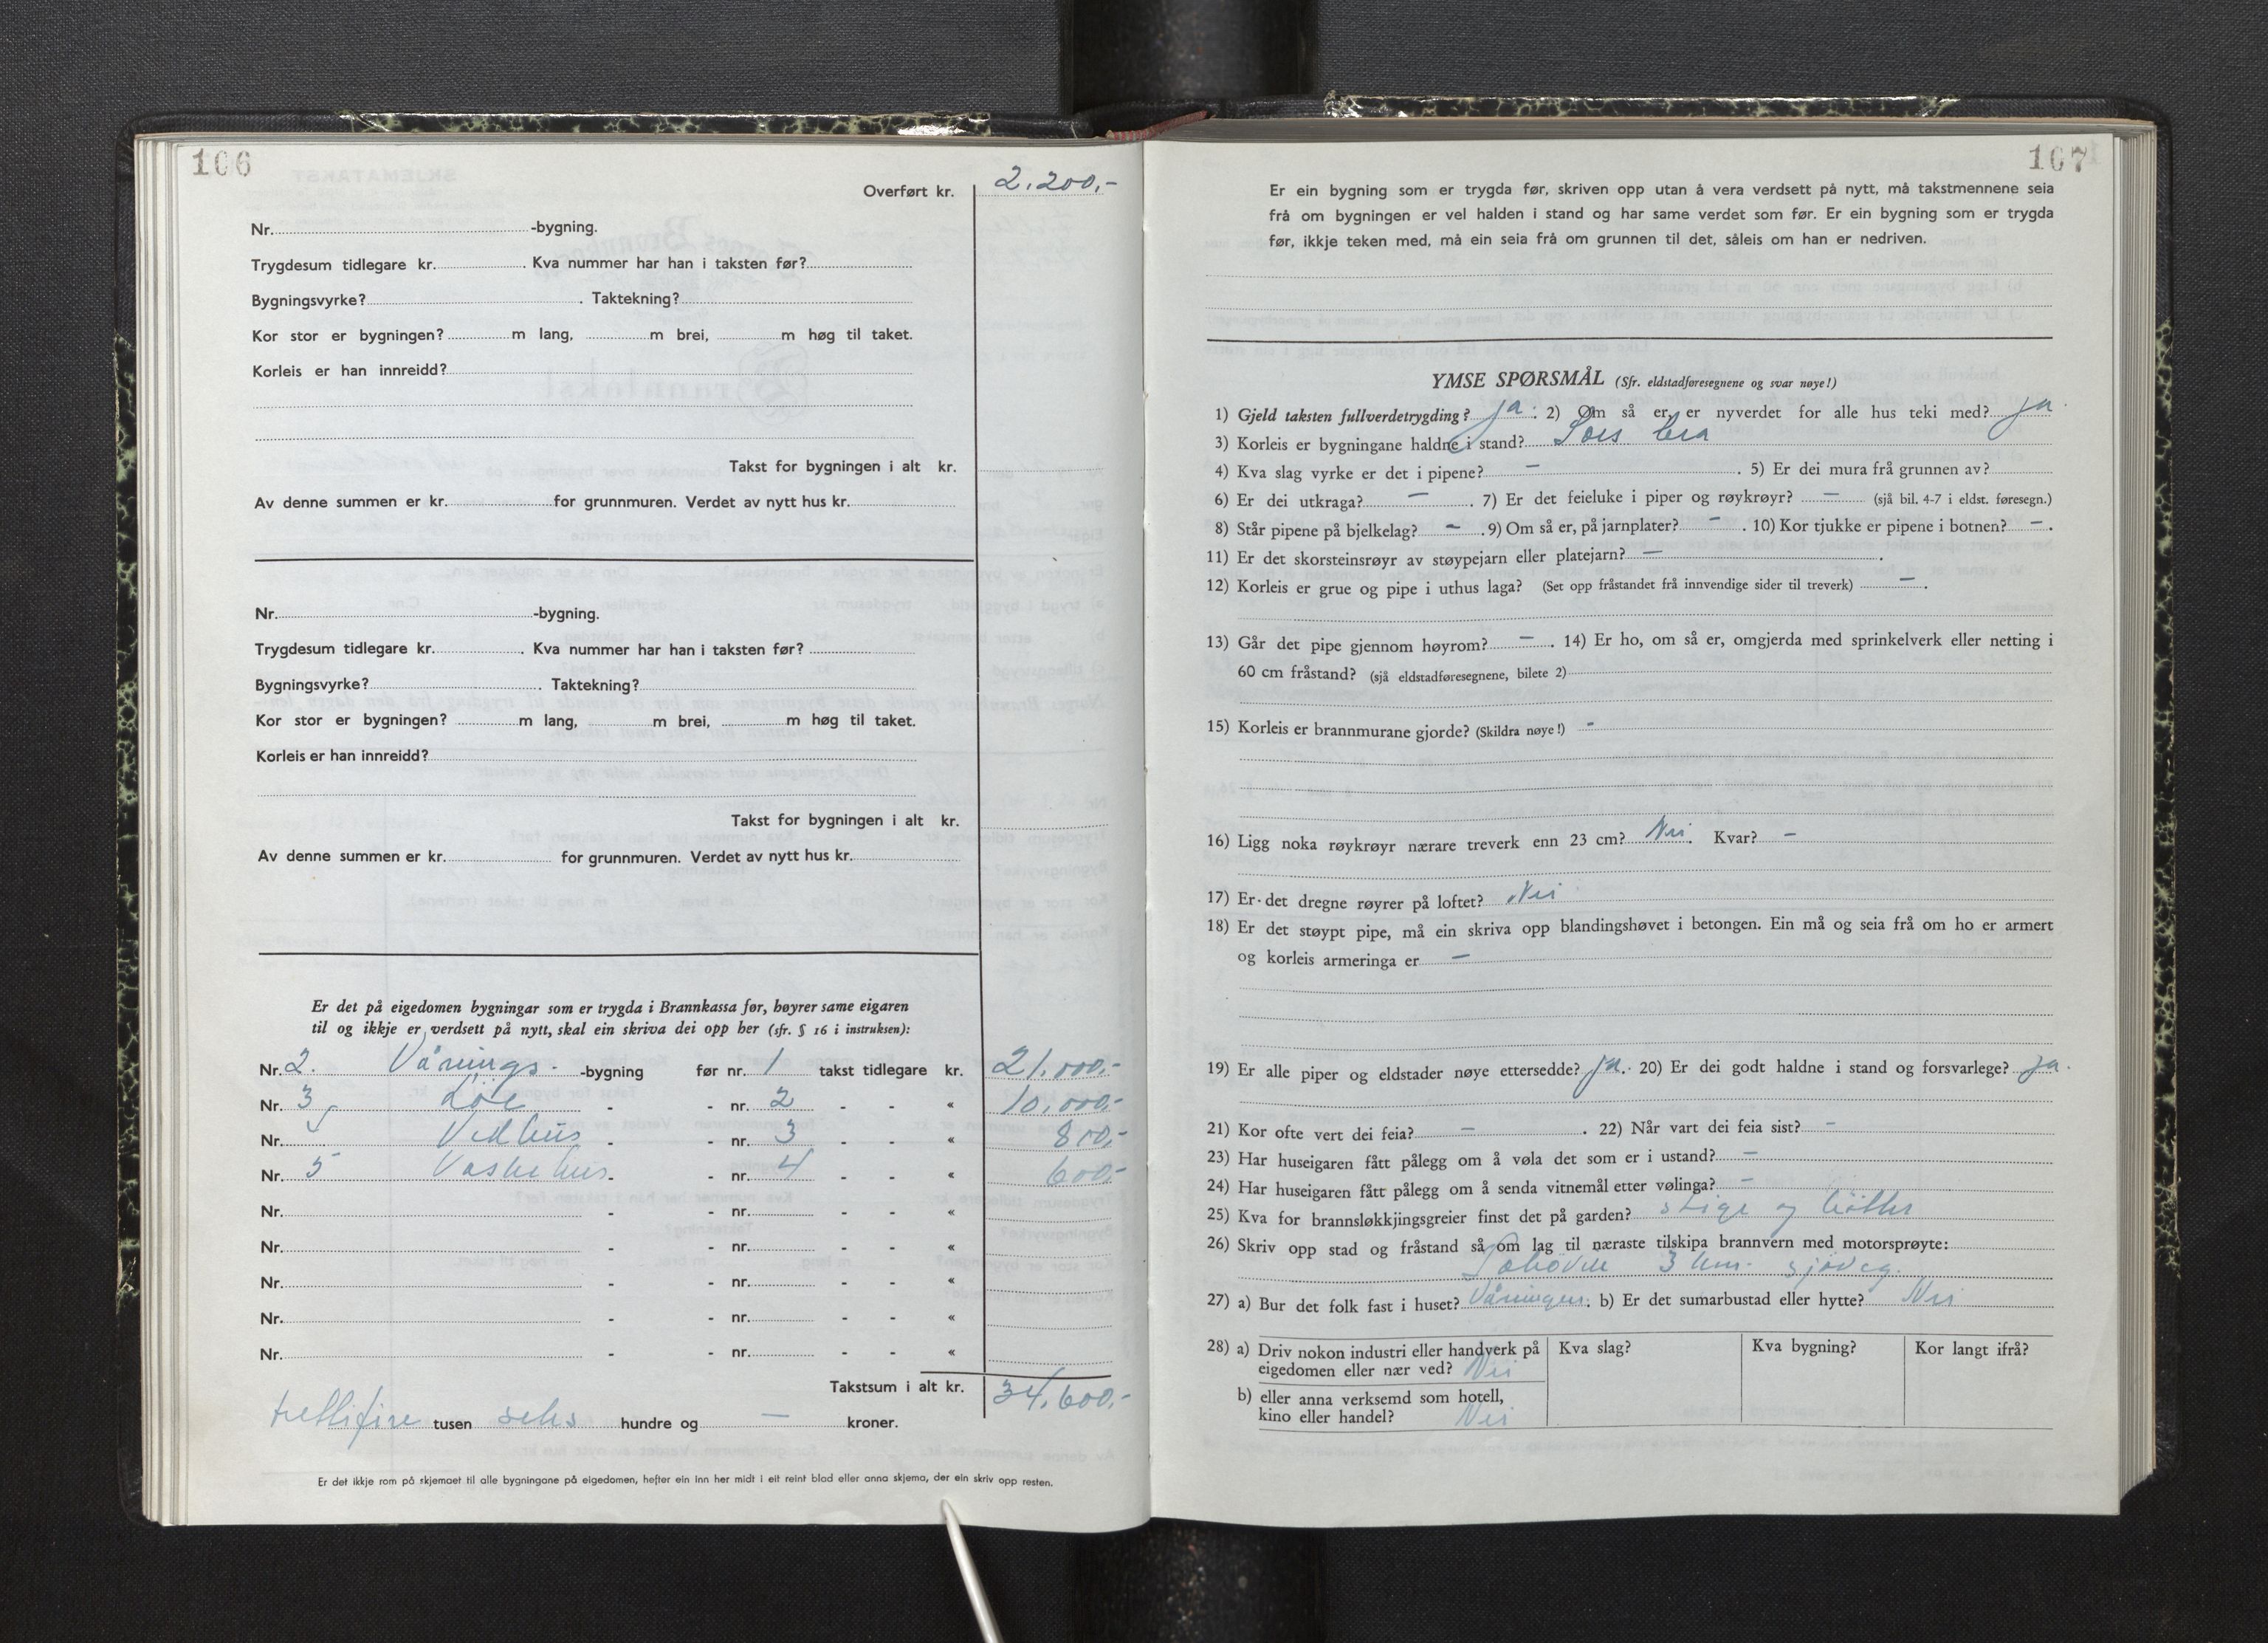 106
Overført kr. 2.200,-
Nr. -bygning.
Trygdesum tidlegare kr. . Kva nummer har han i taksten før?
Bygningsvyrke? . Taktekning?
Kor stor er bygningen? m lang, m brei, m høg til taket.
Korleis er han innreidd?
Takst for bygningen i alt kr.
Av denne summen er kr. for grunnmuren. Verdet av nytt hus kr.
Nr. -bygning.
Trygdesum tidlegare kr. . Kva nummer har han i taksten før?
Bygningsvyrke? . Taktekning?
Kor stor er bygningen? m lang, m brei, m høg til taket.
Korleis er han innreidd?
Takst for bygningen i alt kr.
Av denne summen er kr. for grunnmuren. Verdet av nytt hus kr.
Er det på eigedomen bygningar som er trygda i Brannkassa før, høyrer same eigaren
til og ikkje er verdsett på nytt, skal ein skriva dei opp her (sfr. § 16 i instruksen):
Nr. 2. Vånings- -bygning før nr. 1 takst tidlegare kr. 21.000,-
Nr. 3 Löe - - nr. 2 - - « 10.000,-
Nr. Vedhus - - nr. 3 - - « 800,-
Nr. 5 Vaskehus - - nr. 4 - - « 600,-
Nr. - - nr. - - «
Nr. - - nr. - - «
Nr. - - nr. - - «
Nr. - - nr. - - «
Nr. - - nr. - - «
Takstsum i alt kr. 34.600,-
trettifire tusen seks hundre og — kroner.
Er det ikkje rom på skjemaet til alle bygningane på eigedomen, hefter ein inn her midt i eit reint blad eller anna skjema, der ein skriv opp resten.
107
Er ein bygning som er trygda før, skriven opp utan å vera verdsett på nytt, må takstmennene seia
frå om bygningen er vel halden i stand og har same verdet som før. Er ein bygning som er trygda
før, ikkje teken med, må ein seia frå om grunnen til det, såleis om han er nedriven.
YMSE SPØRSMÅL (Sfr. eldstadføresegnene og svar nøye!)
1) Gjeld taksten fullverdetrygding? ja . 2) Øm så er, er nyverdet for alle hus teki med? ja
3) Korleis er bygningane haldne i stand? bra
4) Kva slag vyrke er det i pipene? — . 5) Er dei mura frå grunnen av?
6) Er dei utkraga? — . 7) Er det feieluke i piper og røykrøyr? — (sjå bil. 4-7 i eldst. føresegn.)
8) Står pipene på bjelkelag? - . 9) Om så er, på jarnplater? - . 10) Kor tjukke er pipene i botnen? - .
11) Er det skorsteinsrøyr av støypejarn eller platejarn? — .
12) Korleis er grue og pipe i uthus laga? (Set opp fråstandet frå innvendige sider til treverk) — .
13) Går det pipe gjennom høyrom? — . 14) Er ho, om så er, omgjerda med sprinkelverk eller netting i
60 cm fråstand? (sjå eldstadføresegnene, bilete 2)
15) Korleis er brannmurane gjorde? (Skildra nøye!) -
16) Ligg noka røykrøyr nærare treverk enn 23 cm? Nei . Kvar? —
17) Er det dregne røyrer på loftet? Nei
18) Er det støypt pipe, må ein skriva opp blandingshøvet i betongen. Ein må og seia frå om ho er armert
og korleis armeringa er —
19) Er alle piper og eldstader nøye ettersedde? ja . 20) Er dei godt haldne i stand og forsvarlege? ja.
21) Kor ofte vert dei feia? — . 22) Når vart dei feia sist? -
23) Har huseigaren fått pålegg om å vøla det som er i ustand? —
24) Har huseigaren fått pålegg om å senda vitnemål etter vølinga? -
25) Kva for brannsløkkjingsgreier finst det på garden? stige og bötter
26) Skriv opp stad og fråstand så om lag til næraste tilskipa brannvern med motorsprøyte:
3 km. sjöveg.
27) a) Bur det folk fast i huset? Våningen . b) Er det sumarbustad eller hytte? Nei
28) a) Driv nokon industri eller handverk på Kva slag? Kva bygning? Kor langt ifrå?
eigedomen eller nær ved? Nei
b) eller anna verksemd som hotell,
kino eller handel? Nei